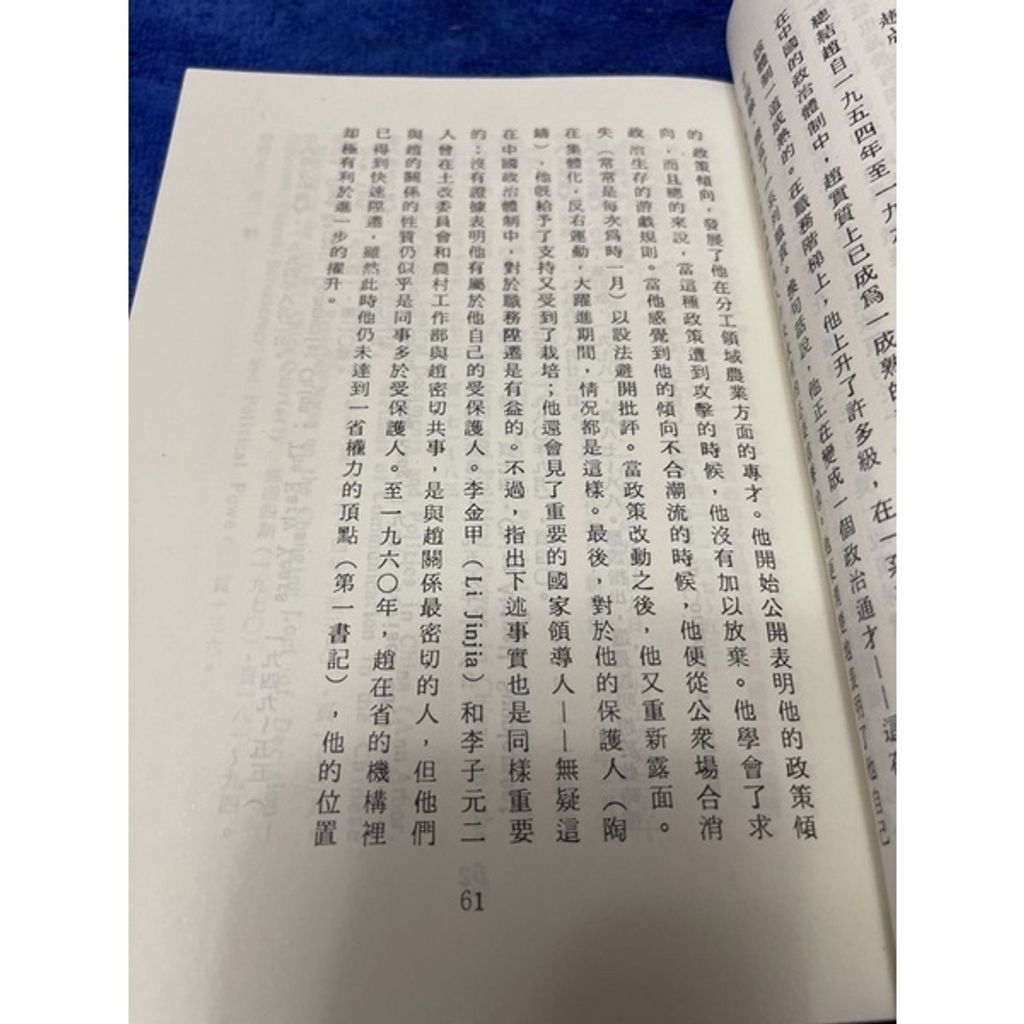 總結趙自一九五四年至一九
在中國的政治體制中，趙實質上已成爲一成熟的
體制一道成熟的。在職務階梯上，他上升了許多級，在一
換句話說，他正在變成一個政治通才——這
的政策傾向，發展了他在分工領域農業方面的專才。他開始公開表明他的政策傾
向，而且總的來說，當這種政策遭到攻擊的時候，他沒有加以放棄。他學會了求
政治生存的游戲規則。當他感覺到他的傾向不合潮流的時候，他便從公衆場合消
失（常常是每次爲時一月）以設法避開批評。當政策改動之後，他又重新露面。
在集體化，反右運動，大躍進期間，情况都是這樣。最後，對於他的保護人（陶
鑄），他既給予了支持又受到了栽培；他還會見了重要的國家領導人——無疑這
在中國政治體制中，對於職務陞遷是有益的。不過，指出下述事實也是同樣重要
的：沒有證據表明他有屬於他自己的受保護人。李金甲（Li Jinjia）和李子元二
人曾在土改委員會和農村工作部與趙密切共事，是與趙關係最密切的人，但他們
與趙的關係的性質仍似乎是同事多於受保護人。至一九六○年，趙在省的機構裡
已得到快速陞遷，雖然此時他仍未達到一省權力的頂點（第一書記），他的位置
却極有利於進一步的擢升。
61